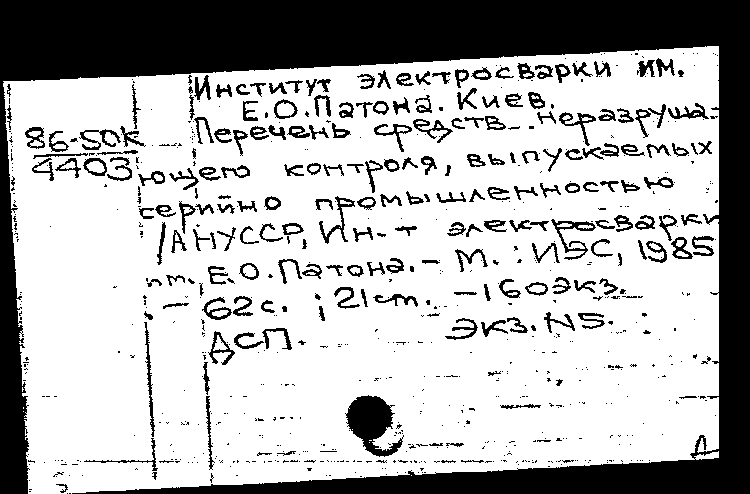 Институт электросварки им.
Е.О.Патона. Киев.
86-50К
4403
Перечень средств неразруша-
ющего контроля, выпускаемых
серийно промышленностью
/АНУССР, Ин-т электросварки
им. Е.О.Патона. - М. : ИЭС, 1985
. - 62с. ; 21см. - 160экз.
ДСП. Экз. N5.
Д